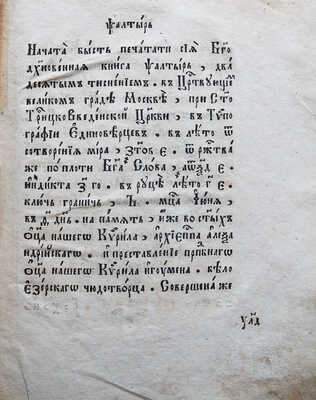 Ѱалтырь
Начата бысть печатати сїѧ Бг҃о
дх҃новеннаѧ книга Ѱалтырь, два
десѧтымъ тиснен́їемъ. въ Цр҃твꙋющемъ
великомъ градѣ Москвѣ, при Ст҃о
Трⷪ҇ицко Введенской Цр҃кви, въ Тѵпо
графїи Единовѣрцевъ. въ лѣто ѿ
сотворенїѧ мїра,
же по плоти Бг҃а Слова,
їндїкта го. въ рꙋцѣ лѣто
ключь граничь, мц҃а Їꙋнїѧ,
въ дн҃ь. на памѧть, иже во ст҃ыхъ
Оц҃а нашегѡ Кѷрила, архїеп҃па алеѯа
ндрїйскагѡ, и преставленїе прпⷣбнагѡ
Оц҃а нашегѡ Кѷрила игꙋмена. бѣло
езерскагѡ чюдотворца. Совершена же